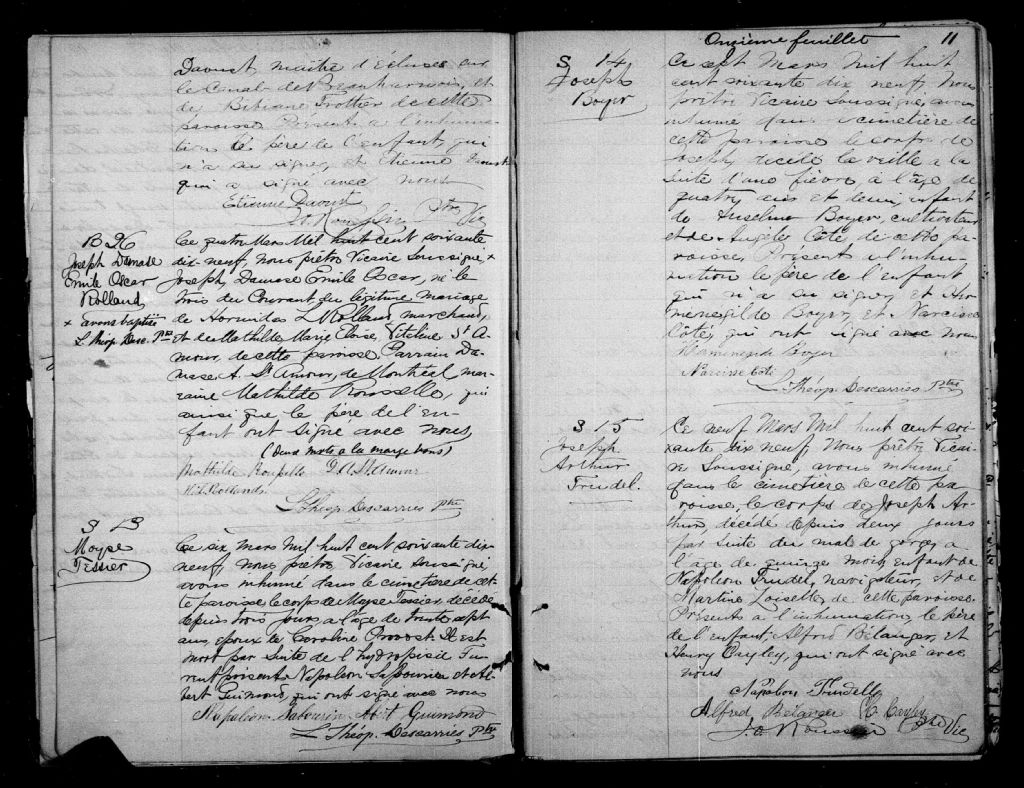 Daoust, maître d'écluses sur
le Canal de Beauharnois, et
de Bibiane Trottier de cette
paroisse. Présents a l'inhuma-
tion le père de l'enfant, qui
n'a su signer, et Etienne Daoust
qui a signé avec nous
Etienne Daoust
Ptre Vic
B 26
Joseph Damase
Emile Oscar
Rolland
+ avons baptisé
L. Théop. Desc. Ptre
Ce quatre Mars Mil huit cent soixante
dix-neuf, nous prêtre Vicaire Soussigné, +
Joseph, Damase Emile Oscar, né le
trois du Courant du légitime mariage
de Hormidas L Rolland, marchand,
et de Mathilde Marie Eloise, Vitaline St A-
mour, de cette paroisse Parrain Da-
mase A. St Amour, de Montréal mar-
raine Mathilde Rousselle, qui
ainsi que le père de l'en-
fant ont signé avec nous,
(deux mots a la marge bons)
Mathilde Rousselle D. A. St. Amour
H. L. Rolland
L. Théop. Descarries ptre
S 13
Moyse
Tessier
Ce six, Mars Mil huit cent soixante dix-
neuf, nous prêtre Vicaire Soussigné,
avons inhumé dans le cimetière de cet-
te paroisse le corps de Moyse Tessier, décédé
depuis trois jours a l'âge de trente sept
ans, epoux de Caroline Provost. Il est
mort par suite de l'hydropisie Fu-
rent présents Napoléon Sabourin et Al-
bert Guimond, qui ont signé avec nous
Napoléon Sabourin Abt Guimond
L. Théop. Descarries Ptre
Onzième feuillet 11
S 14
Joseph
Boyer
Ce sept Mars Mil huit
cent soixante dix neuf, Nous
prêtre Vicaire Soussigné, avons
inhumé dans le cimetière de
cette paroisse le corps de
Joseph, décédé la veille a la
suite d'une fièvre à l'âge de
quatre ans et demi, enfant
de Anselme Boyer, cultivateur
et de Angèle Côté, de cette pa-
roisse. Présents a l'inhu-
mation le père de l'enfant
qui n'a su signer, et Her-
menegilde Boyer, et Narcisse
Côté, qui ont signé avec nous
Harminegile Boyer
Narcisse Coté
L. Théop Descarries Ptre
S 15
Joseph
Arthur
Trudel.
Ce neuf Mars Mil huit cent soi-
xante dix neuf, Nous prêtre Vicai-
re Soussigné, avons inhumé
dans le cimetière de cette pa-
roisse, le corps de Joseph Ar-
thur décédé depuis deux jours
par suite du mal de gorge, a
l'âge de quinze mois, enfant de
Napoléon Trudel, navigateur, et de
Martine Loiselle, de cette paroisse.
Présents a l'inhumation, le père
de l'enfant, Alfred Bélanger, et
Henry Cayley, qui ont signé avec
nous
Napoléon Trudelle
Alfred Bélanger H. Cayley
J. O. Roussin ptre Vic